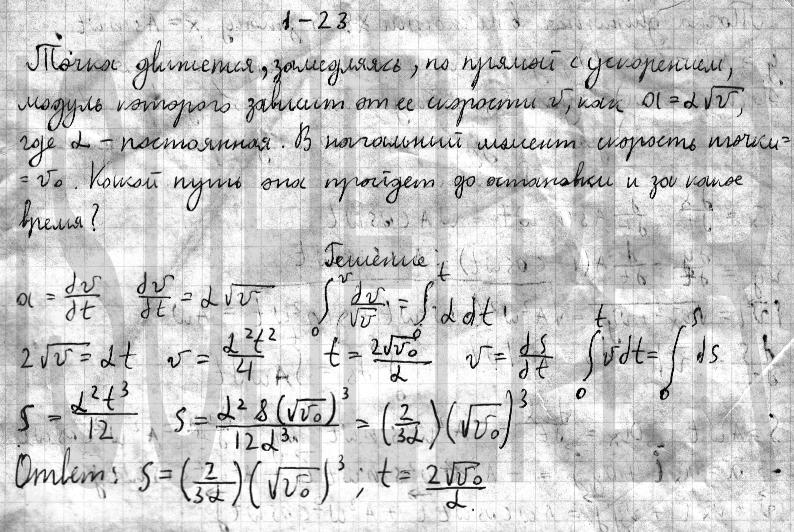 1-23.
Точка движется, замедляясь, по прямой с ускорением,
модуль которого зависит от ее скорости v, как a = α√v,
где α - постоянная. В начальный момент скорость точки =
= v₀. Какой путь она пройдет до остановки и за какое
время?
Решение:
a = dv/dt dv/dt = α√v ∫₀^v dv/√v = ∫₀^t α dt
2√v = αt v = α²t²/4 t = 2√v₀/α v = ds/dt ∫₀^t v dt = ∫₀^s ds
S = α²t³/12 S = α² 8 (√v₀)³/12α³ = (2/3α)(√v₀)³
Ответ: S = (2/3α)(√v₀)³, t = 2√v₀/α.